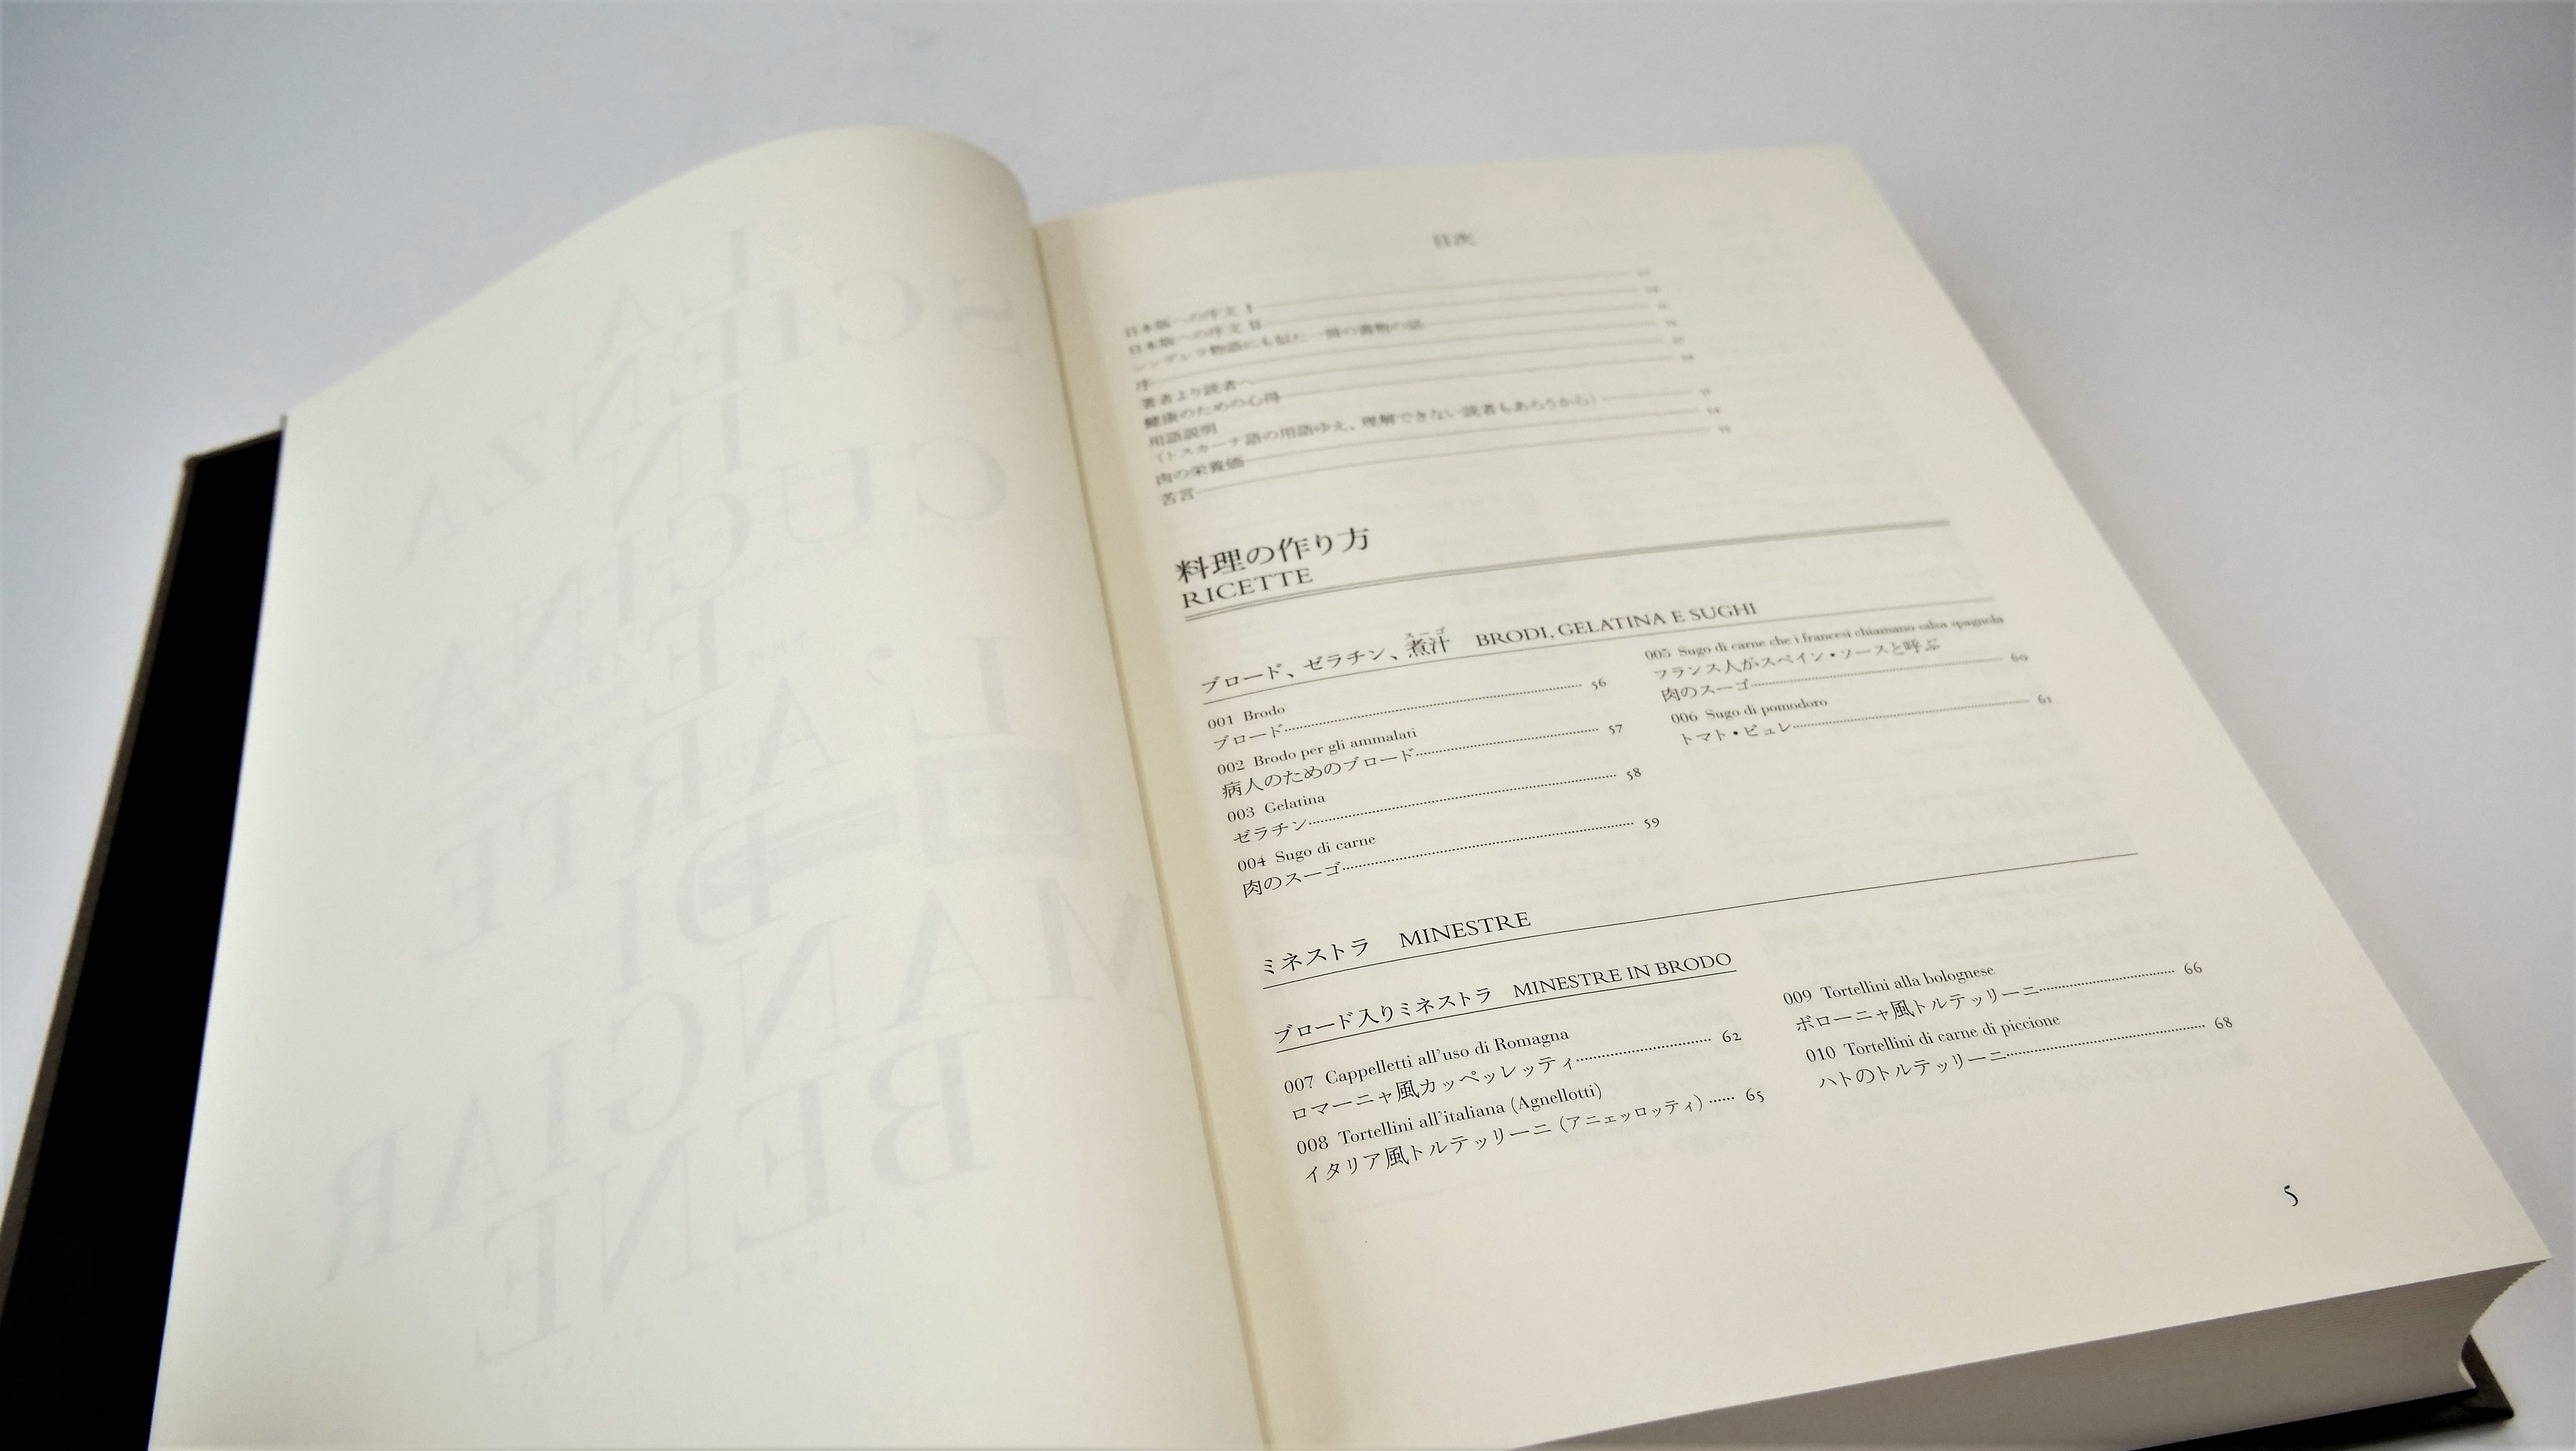 LA
SCIENZA
IN
CUCINA
E
L'ARTE
DI
MANGIAR
BENE
目次
日本版への序文 I
日本版への序文 II
シンデレラ物語にも似た一冊の書物の話
序
著者より読者へ
健康のための心得
用語説明
(トスカーナ語の用語ゆえ、理解できない読者もあろうから)
肉の栄養価
苦言
料理の作り方
RICETTE
ブロード、ゼラチン、煮汁 スーゴ BRODI, GELATINA E SUGHI
001 Brodo
ブロード 56
002 Brodo per gli ammalati
病人のためのブロード 57
003 Gelatina
ゼラチン 58
004 Sugo di carne
肉のスーゴ 59
005 Sugo di carne che i francesi chiamano salsa spagnola
フランス人がスペイン・ソースと呼ぶ
肉のスーゴ 60
006 Sugo di pomodoro
トマト・ピュレ 61
ミネストラ MINESTRE
ブロード入りミネストラ MINESTRE IN BRODO
007 Cappelletti all'uso di Romagna
ロマーニャ風カッペッレッティ 62
008 Tortellini all'italiana (Agnellotti)
イタリア風トルテッリーニ (アニェッロッティ) 65
009 Tortellini alla bolognese
ボローニャ風トルテッリーニ 66
010 Tortellini di carne di piccione
ハトのトルテッリーニ 68
5